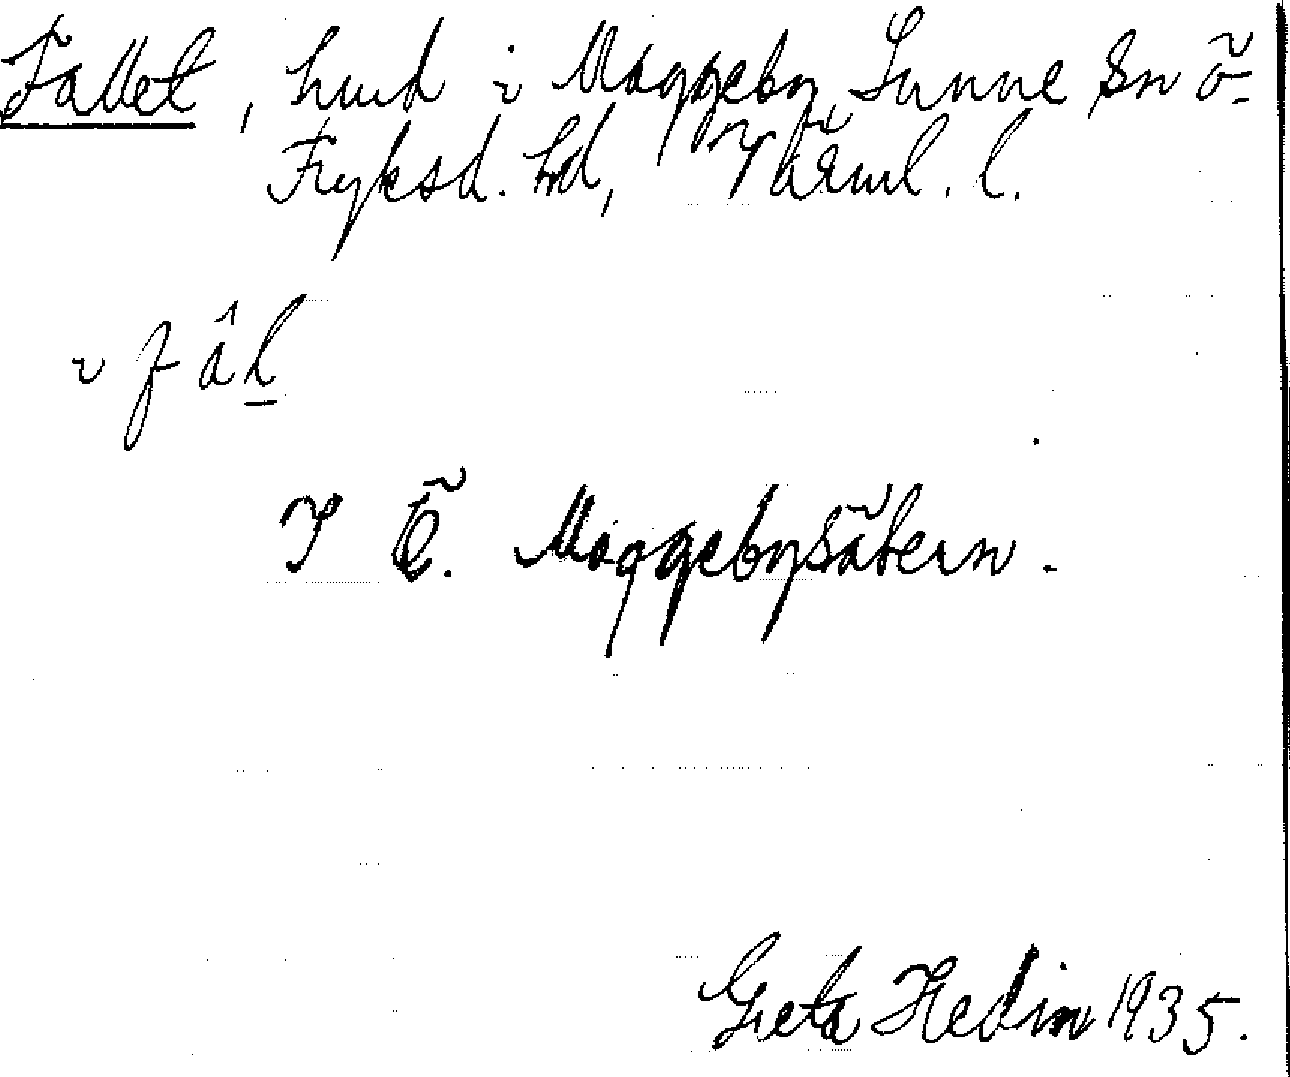 Fallet, hmd i Maggeby, Sunne sn Ö-
Fryksd. hd, Värml. l.
i fâl
I Ö. Maggebysätern.
Greta Hedin 1935.